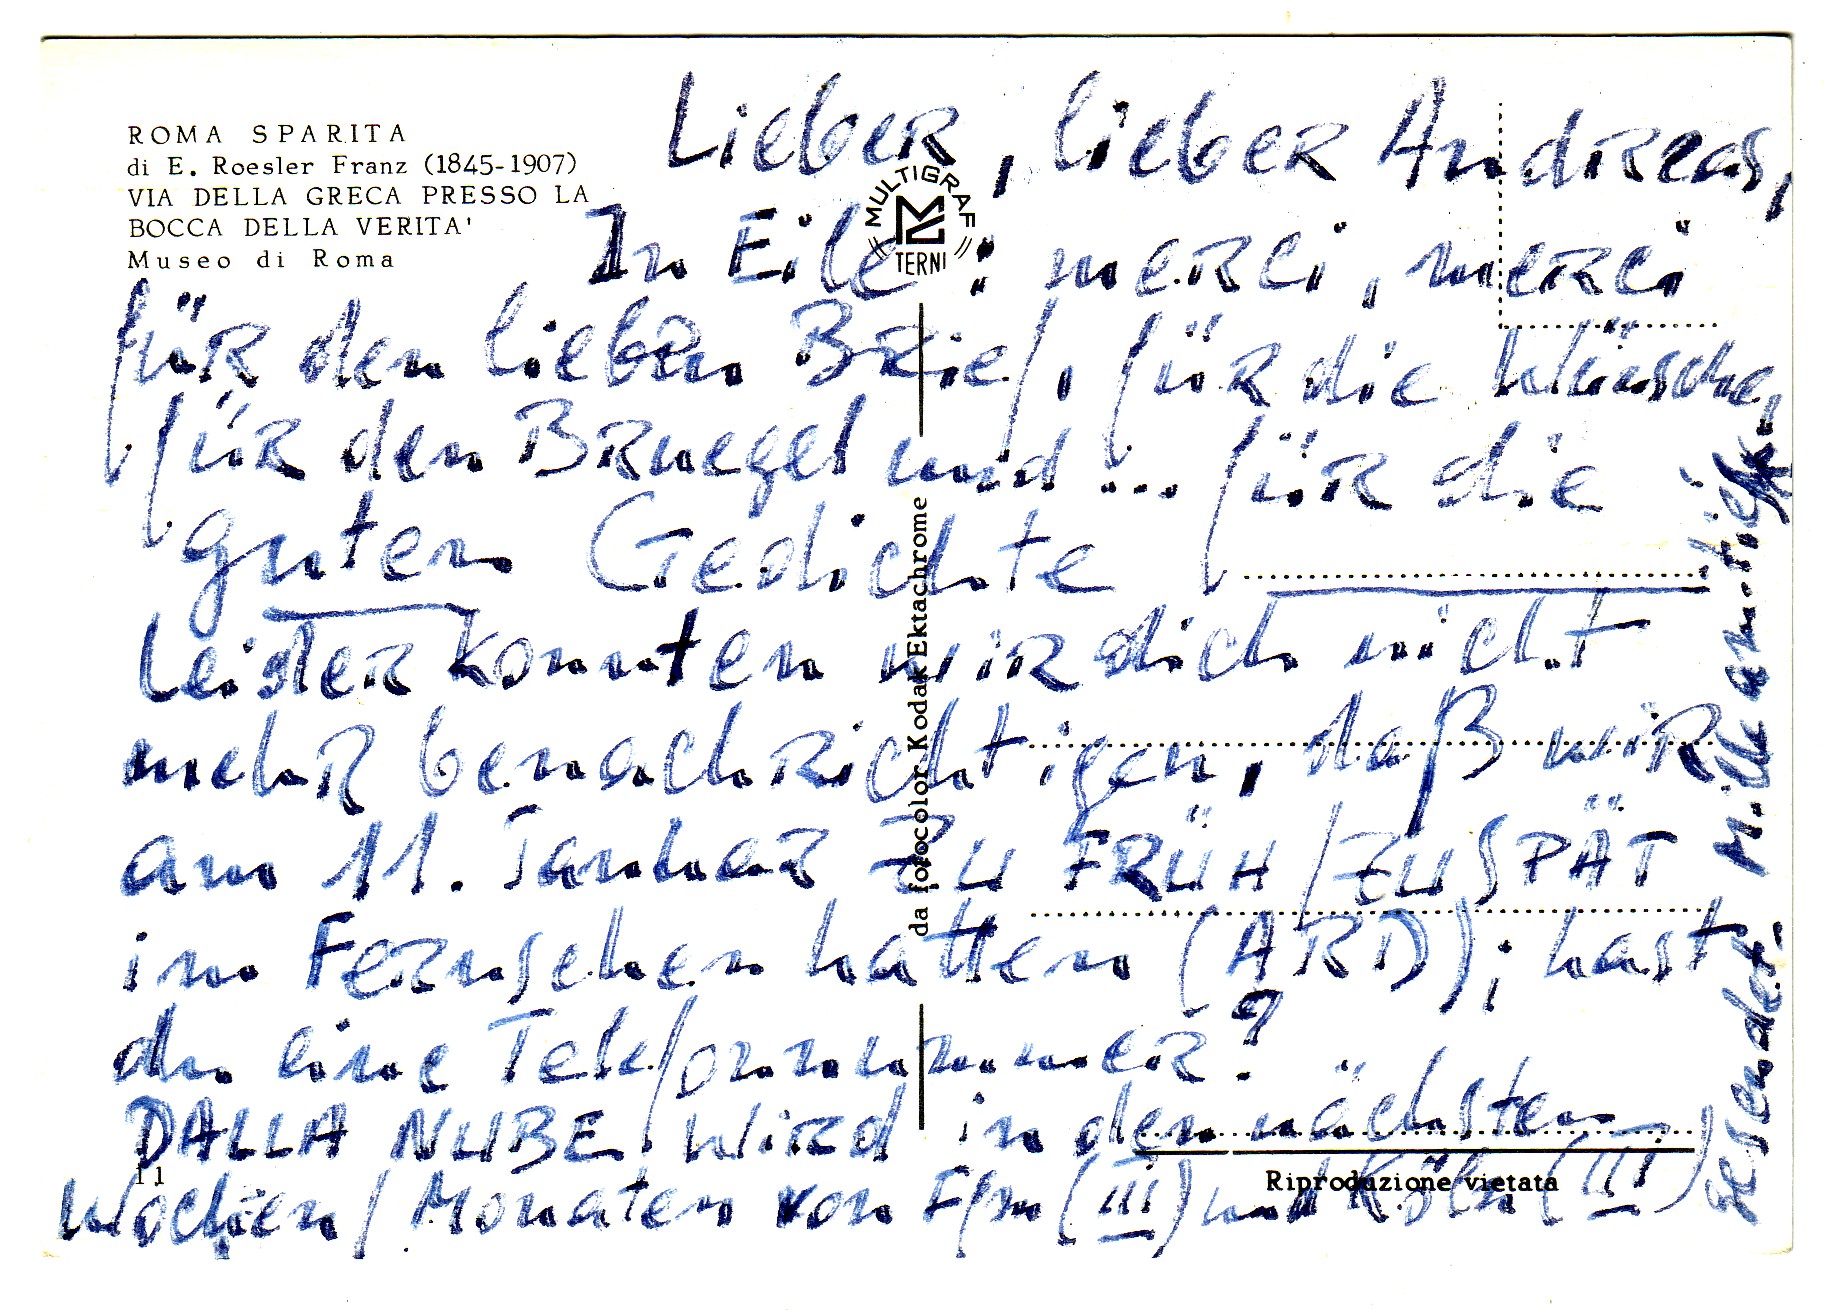 ROMA SPARITA
di E. Roesler Franz (1845-1907)
VIA DELLA GRECA PRESSO LA
BOCCA DELLA VERITA'
Museo di Roma
MULTIGRAF
TERNI
Lieber, lieber Andreas,
In Eile: merci, merci
für den lieben Brief, für die Wünsche,
für den Bruegel und ... für die
guten Gedichte
Leider konnten wir dich nicht
mehr benachrichtigen, daß wir
am 11. Januar ZU FRÜH/ZU SPÄT
im Fernsehen hatten (ARD); hast
du eine Telefonnummer?
DALLA NUBE wird in den nächsten
Wochen/Monaten von Ffm (III) und Köln (III)
gesendet.
da fotocolor Kodak Ektachrome
Riproduzione vietata
11